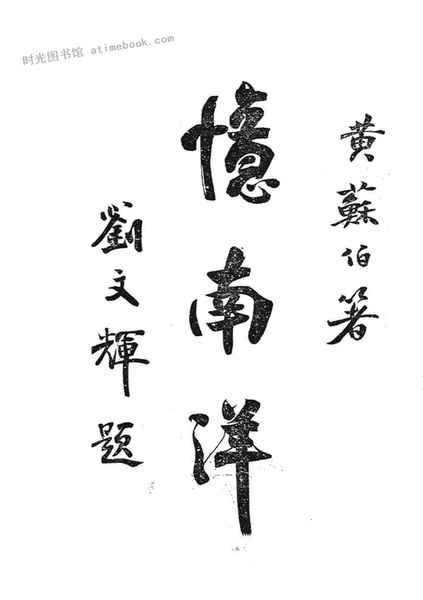 时光图书馆 atimebook.com
黄蘇伯箸
憶南洋
劉文輝題